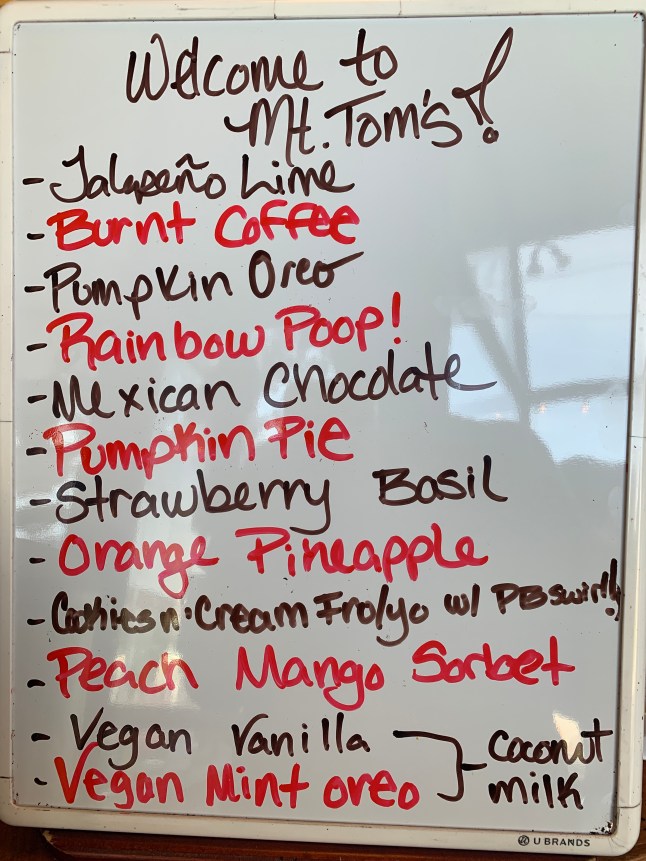 Welcome to
Mt. Tom's!
- Jalapeño Lime
- Burnt Coffee
- Pumpkin Oreo
- Rainbow Poop!
- Mexican Chocolate
- Pumpkin Pie
- Strawberry Basil
- Orange Pineapple
- Cookies n' Cream Fro/yo w/ PB swirl!
- Peach Mango Sorbet
- Vegan Vanilla
- Vegan Mint oreo
coconut
milk
U BRANDS